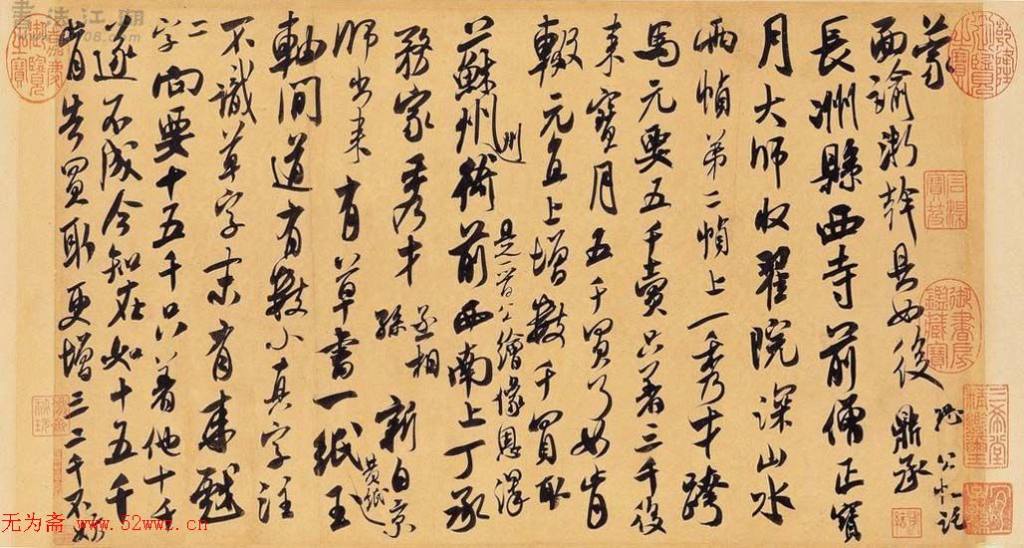 蒙
面諭浙幹具如後 鼎承
長洲縣西寺前僧正寶
月大師收翟院深山水
兩幀第二幀上一秀才跨
馬元要五千賣只著三千後
來寶月五千買了如肯
輟元直上增數千買取
是晉公繪像恩澤
蘇州州衙前西南上丁承
務家秀才丞相孫新自京
師出來有草書一紙黃紙玉
軸間道有數小真字注
不識草字末有來戲
二字向要十五千只著他十千
遂不成今知在如十五千
肯告買取更增三二千不妨
书法江湖
无为斋 www.52wwz.cn